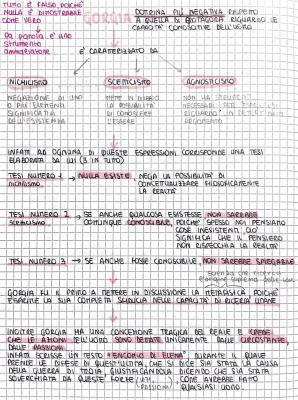 TUTTO È FALSO, POICHÉ
NULLA È DIMOSTRABILE
COME VERO
La parola è uno
strumento
ammaliatore
GORGIA
DOTTRINA PIÙ NEGATIVA RISPETTO
A QUELLA DI PROTAGORA RIGUARDO LE
CAPACITÀ CONOSCITIVE DELL'UOMO
È CARATTERIZZATO DA
NICHILISMO
SCETTICISMO
AGNOSTICISMO
NEGAZIONE DI UNO
O PIÙ ELEMENTI
SIGNIFICATIVI
DELL'ESISTENZA
METTE IN DUBBIO
LA POSSIBILITÀ
DI CONOSCERE
L'ESSERE
NON HA
NECESSARI PER
RIGUARDO
ARGOMENTO
INFATTI AD OGNUNA DI QUESTE ESPRESSIONI CORRISPONDE UNA TESI
ELABORATA DA LUI (3 IN TUTTO)
TESI NUMERO 1 → NULLA ESISTE: NEGA LA POSSIBILITÀ DI
nichilismo CONCETTUALIZZARE FILOSOFICAMENTE
LA REALTÀ
TESI NUMERO 2 → SE ANCHE QUALCOSA ESISTESSE NON SAREBBE
scetticismo COMUNQUE CONOSCIBILE, POICHÉ SPESSO NOI PENSIAMO
COSE INESISTENTI, CIÒ
SIGNIFICA CHE IL PENSIERO
NON RISPECCHIA LA REALTÀ
TESI NUMERO 3 → SE ANCHE FOSSE CONOSCIBILE, NON SAREBBE SPIEGABILE
GORGIA FU IL PRIMO A METTERE IN DISCUSSIONE LA METAFISICA POICHÉ
ESAURÌ LA SUA COMPLETA SFIDUCIA NELLE CAPACITÀ DI RICERCA UMANE
INOLTRE GORGIA HA UNA CONCEZIONE TRAGICA DEL REALE E CREDE
CHE LE AZIONI DELL'UOMO SONO DETTATE UNICAMENTE DALLE CIRCOSTANZE,
DALLE PASSIONI
INFATTI SCRISSE UN TESTO "ENCOMIO DI ELENA" DURANTE IL QUALE
PRENDE LE DIFESE DI QUEST'ULTIMA, CHE SI DICE SIA STATA LA CAUSA
DELLA GUERRA DI TROIA, GIUSTIFICANDOLA DICENDO CHE SIA STATA
SOVERCHIATA DA QUESTE FORZE
COME AVREBBE FATTO
QUALSIASI UOMO